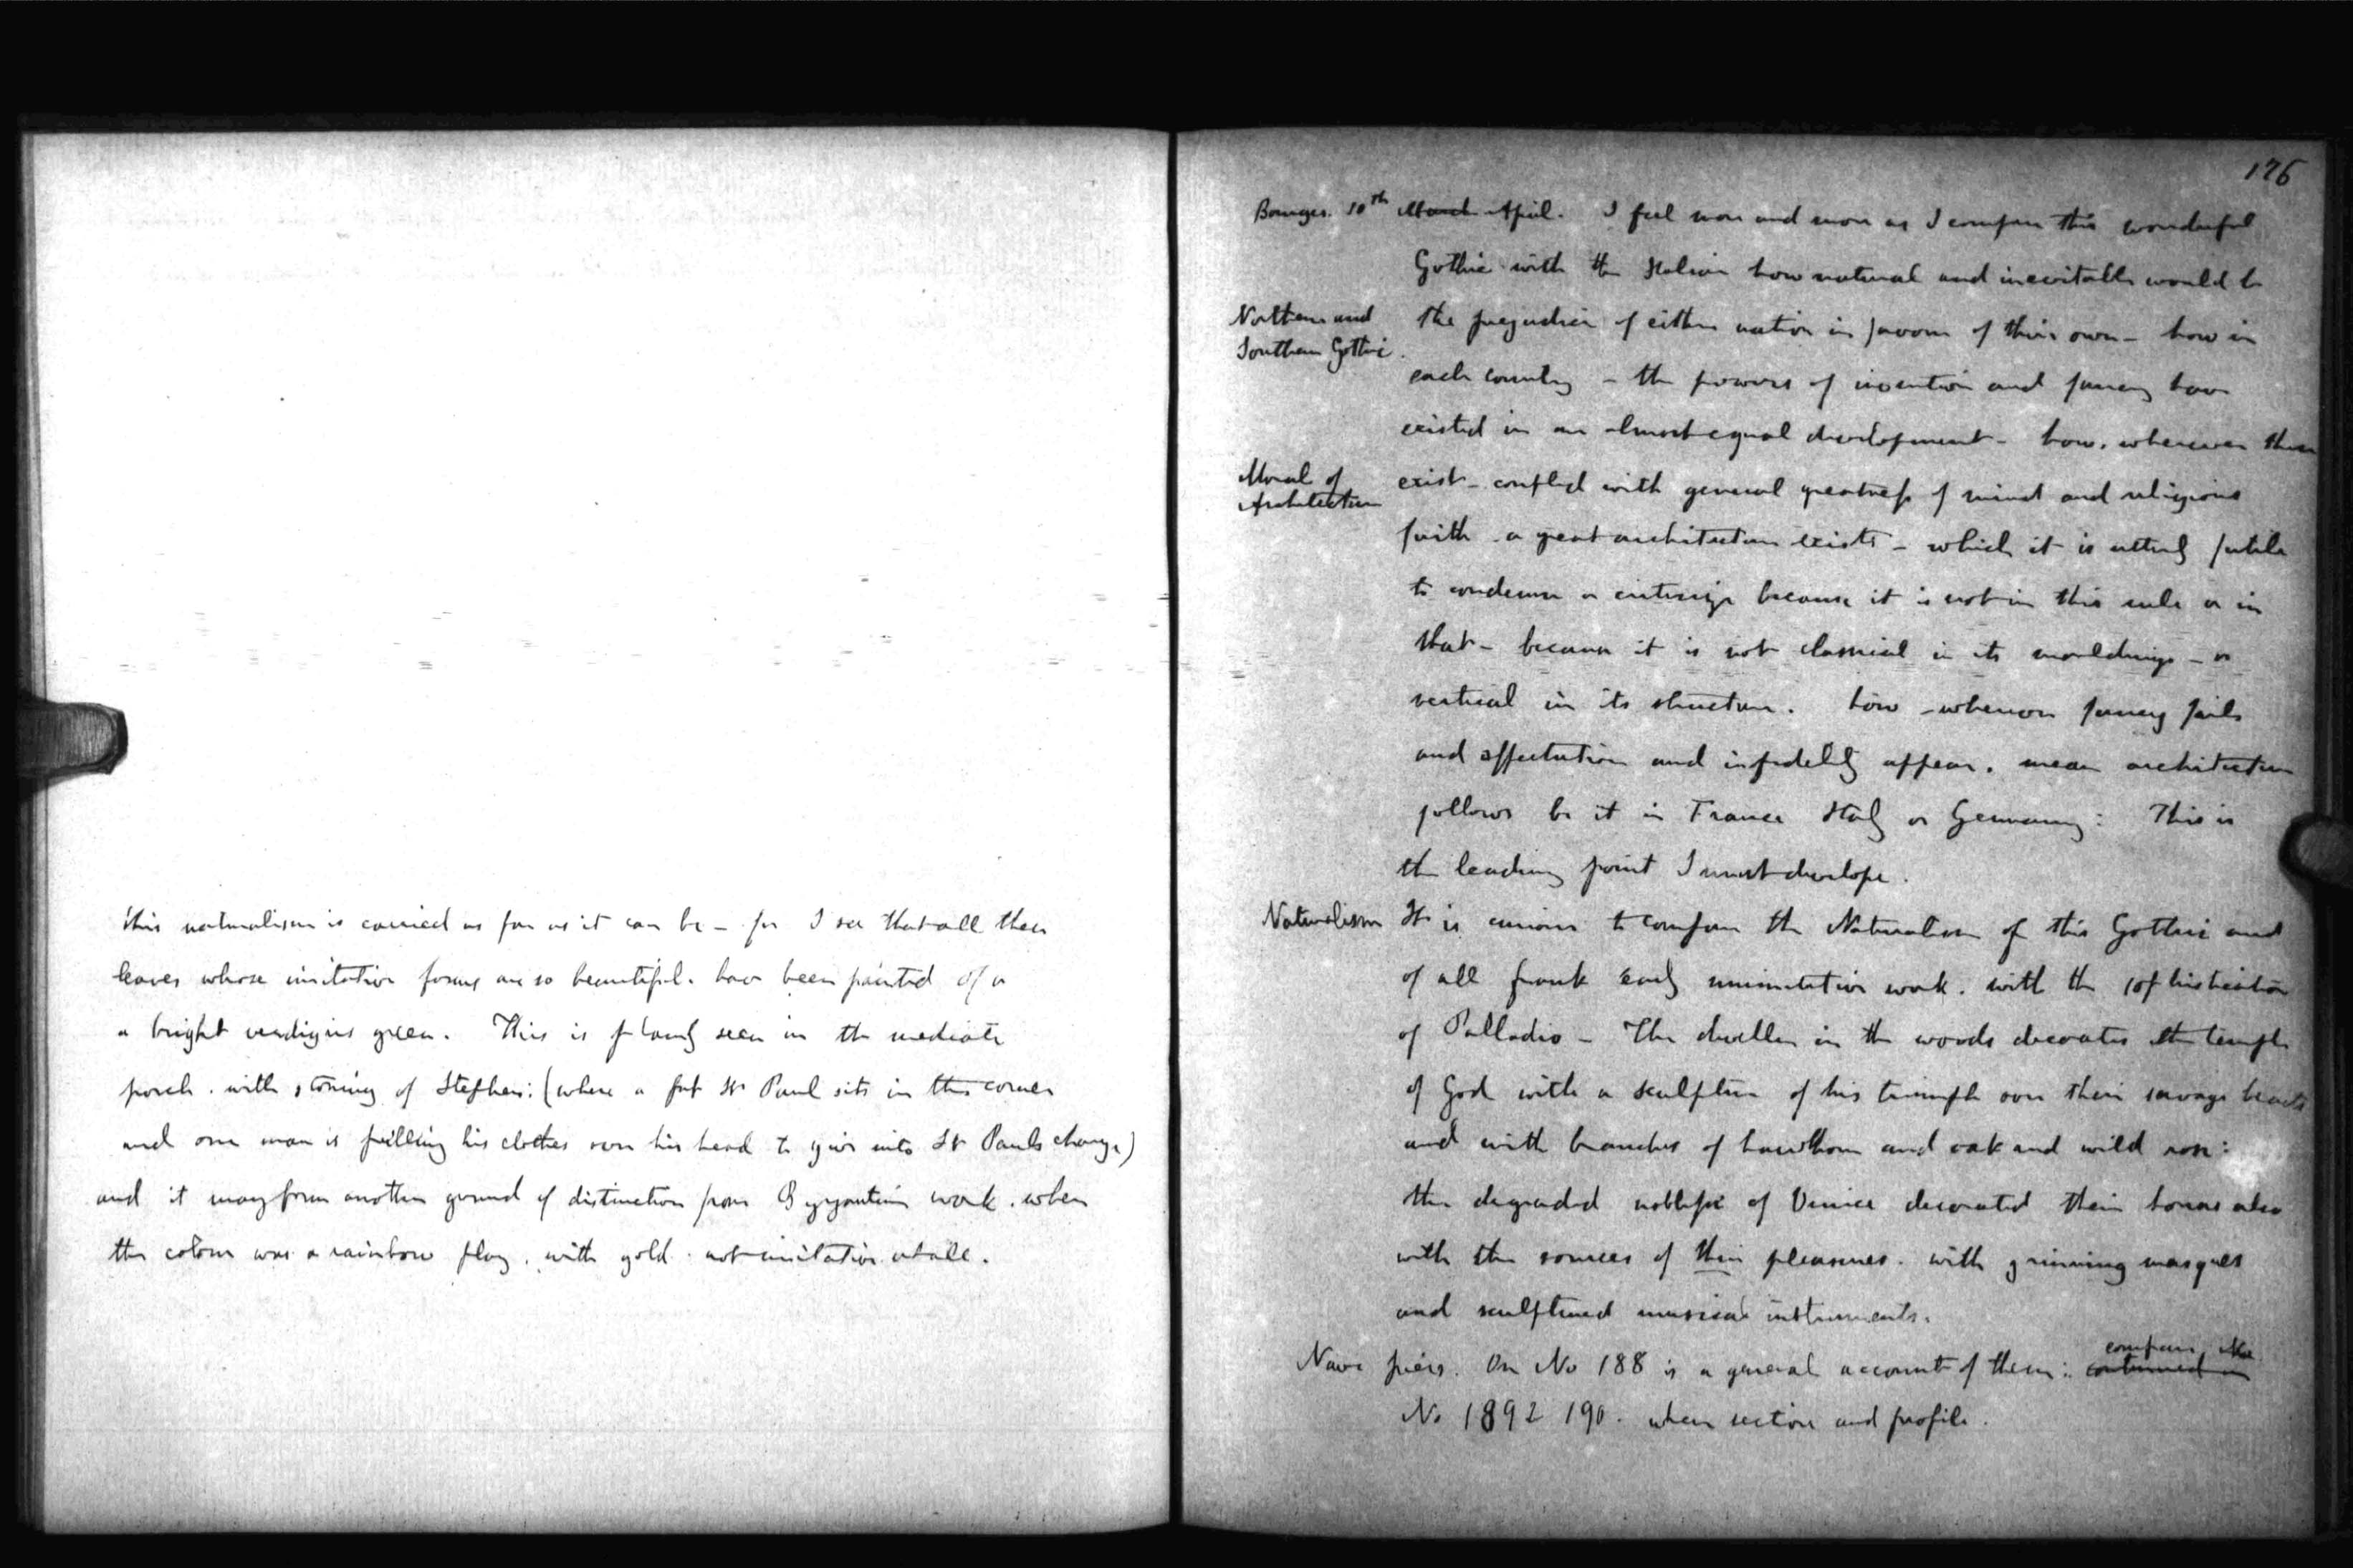 this naturalism is carried as far as it can be – for I see that all these
leaves whose imitative forms are so beautiful. have been painted of a
a bright verdigris green. This is plainly seen in the mediate
porch. with stoning of Stephen: (where a fat St Paul sits in the corner
and one man is pulling his clothes over his head to give into St Pauls charge)
and it may form another ground of distinction from Byzantine work. when
the colour was a rainbow play. with gold. not imitative at all.
176
Bourges. 10th March April. I feel more and more as I compare this wonderful
Gothic with the Italian how natural and inevitable would be
Northern and
Southern Gothic.
the prejudice of either nation in favour of their own – how in
each country – the powers of invention and fancy have
existed in an almost equal development – how. wherever these
Moral of
Architecture
exist – coupled with general greatness of mind and religious
faith a great architecture exists – which it is utterly futile
to condemn or criticize because it is not in this rule or in
that – because it is not classical in its mouldings – or
vertical in its structure. how – whenever fancy fails
and affectation and infidelity appear. mean architecture
follows be it in France Italy or Germany: This is
the leading point I must develope.
Naturalism It is curious to compare the Naturalism of this Gothic and
of all frank early unimitative work. with the sophistication
of Palladio – The dweller in the woods decorates the temple
of God with a sculpture of his triumph over their savage beasts
and with branches of hawthorn and oak and wild rose:
the degraded noblesse of Venice decorated their houses also
with the sources of their pleasures. with grinning masques
and sculptured musical instruments.
Nave piers. On No 188 is a general account of them: compare the
continued on
No 1892 190. when section and profile.